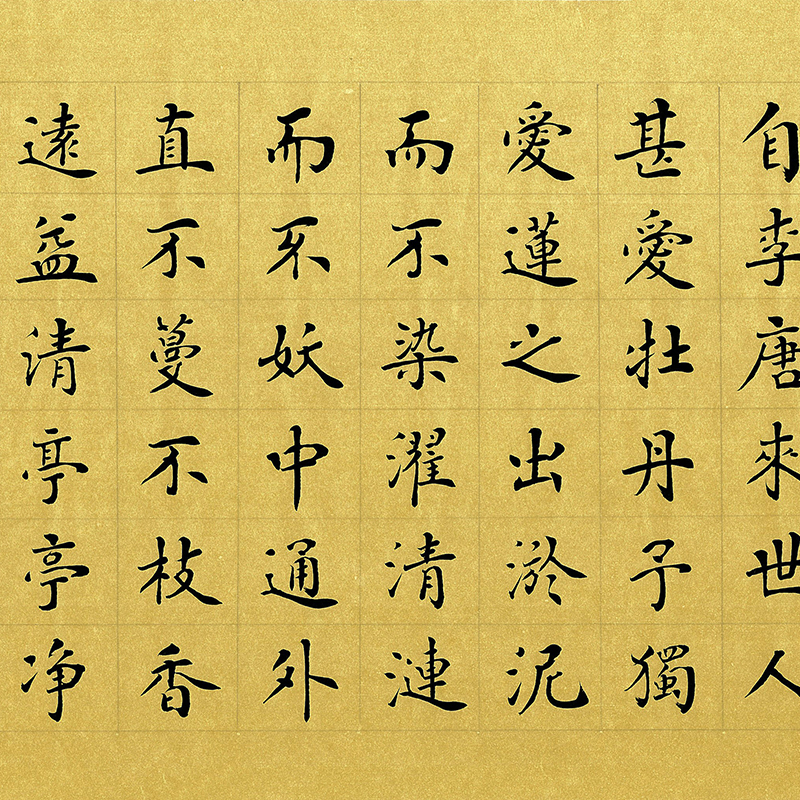 自李唐來世人
甚愛牡丹予獨
愛蓮之出淤泥
而不染濯清漣
而不妖中通外
直不蔓不枝香
遠益清亭亭净